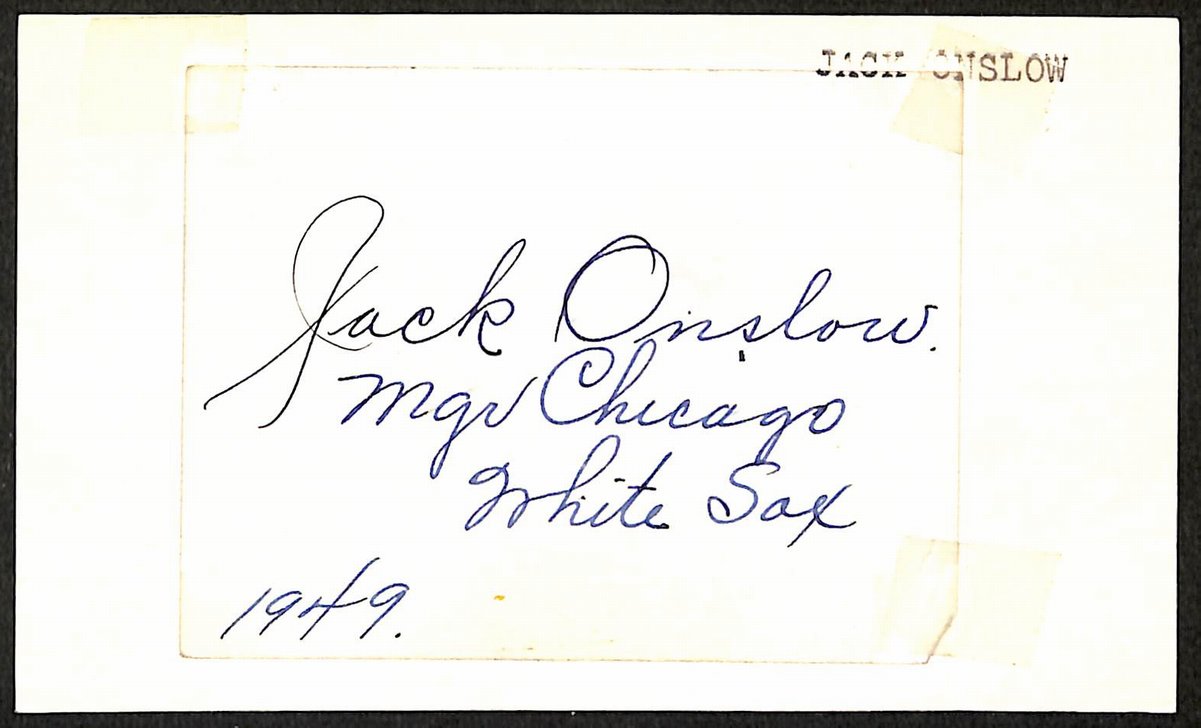 JACK ONSLOW
Jack Onslow.
Mgr Chicago
White Sox
1949.